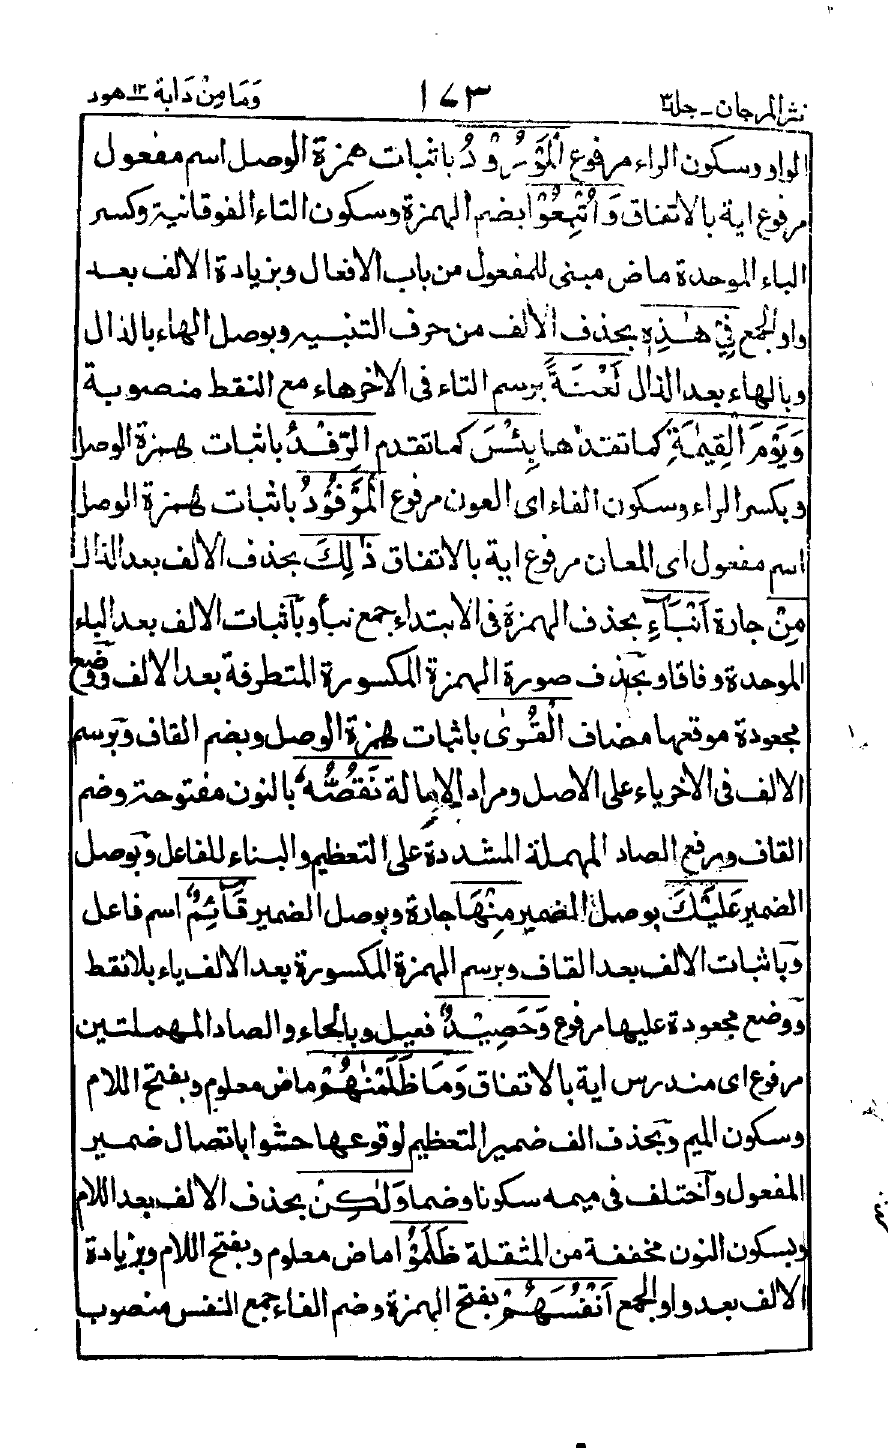 نثر المرجان - جلد ٣
١٧٣
وَمَا مِنْ دَابة ١٢ هود
الواو وسكون الراء مرفوع الْمَوْرُوْدُ باثبات همزة الوصل اسم مفعول
مرفوع اية بالاتفاق وَاُتْبِعُوْا بضم الهمزة وسكون التاء الفوقانية وكسر
الباء الموحدة ماض مبنى للمفعول من باب الافعال وبزيادة الالف بعد
واو الجمع فِيْ هٰذِهٖ بحذف الالف من حرف التنبيه وبوصل الهاء بالذال
وبالهاء بعد الذال لَعْنَةً برسم التاء فى الاخرهاء مع النقط منصوبة
وَيَوْمَ الْقِيٰمَةِ كما تقدما بِئْسَ كما تقدم الرِّفْدُ باثبات همزة الوصل
وبكسر الراء وسكون الفاء اى العون مرفوع الْمَرْفُوْدُ باثبات همزة الوصل
اسم مفعول اى المعان مرفوع اية بالاتفاق ذٰلِكَ بحذف الالف بعد الذال
مِنْ جارة اَنْبَآءِ بحذف الهمزة فى الابتداء جمع نبأ وباثبات الالف بعد الباء
الموحدة وفاقا وبحذف صورة الهمزة المكسورة المتطرفة بعد الالف ووضع
مجعودة موقعها مضاف الْقُرٰى باثبات همزة الوصل وبضم القاف وبرسم
الالف فى الاخر ياء على الاصل ومراد الامالة نَقُصُّهٗ بالنون مفتوحة وضم
القاف ورفع الصاد المهملة المشددة على التعظيم والبناء للفاعل وبوصل
الضمير عَلَيْكَ بوصل الضمير مِنْهَا جارة وبوصل الضمير قَآئِمٌ اسم فاعل
وباثبات الالف بعد القاف وبرسم الهمزة المكسورة بعد الالف ياء بلا نقط
ووضع مجعودة عليها مرفوع وَحَصِيْدٌ فعيل وبالحاء والصاد المهملتين
مرفوع اى مندرس اية بالاتفاق وَمَا ظَلَمْنٰهُمْ ماض معلوم وبفتح اللام
وسكون الميم وبحذف الف ضمير التعظيم لوقوعها حشوا باتصال ضمير
المفعول واختلف فى ميمه سكونا وضما وَلٰكِنْ بحذف الالف بعد اللام
وبسكون النون مخففة من المثقلة ظَلَمُوْٓا ماض معلوم وبفتح اللام وبزيادة
الالف بعد واو الجمع اَنْفُسَهُمْ بفتح الهمزة وضم الفاء جمع النفس منصوب